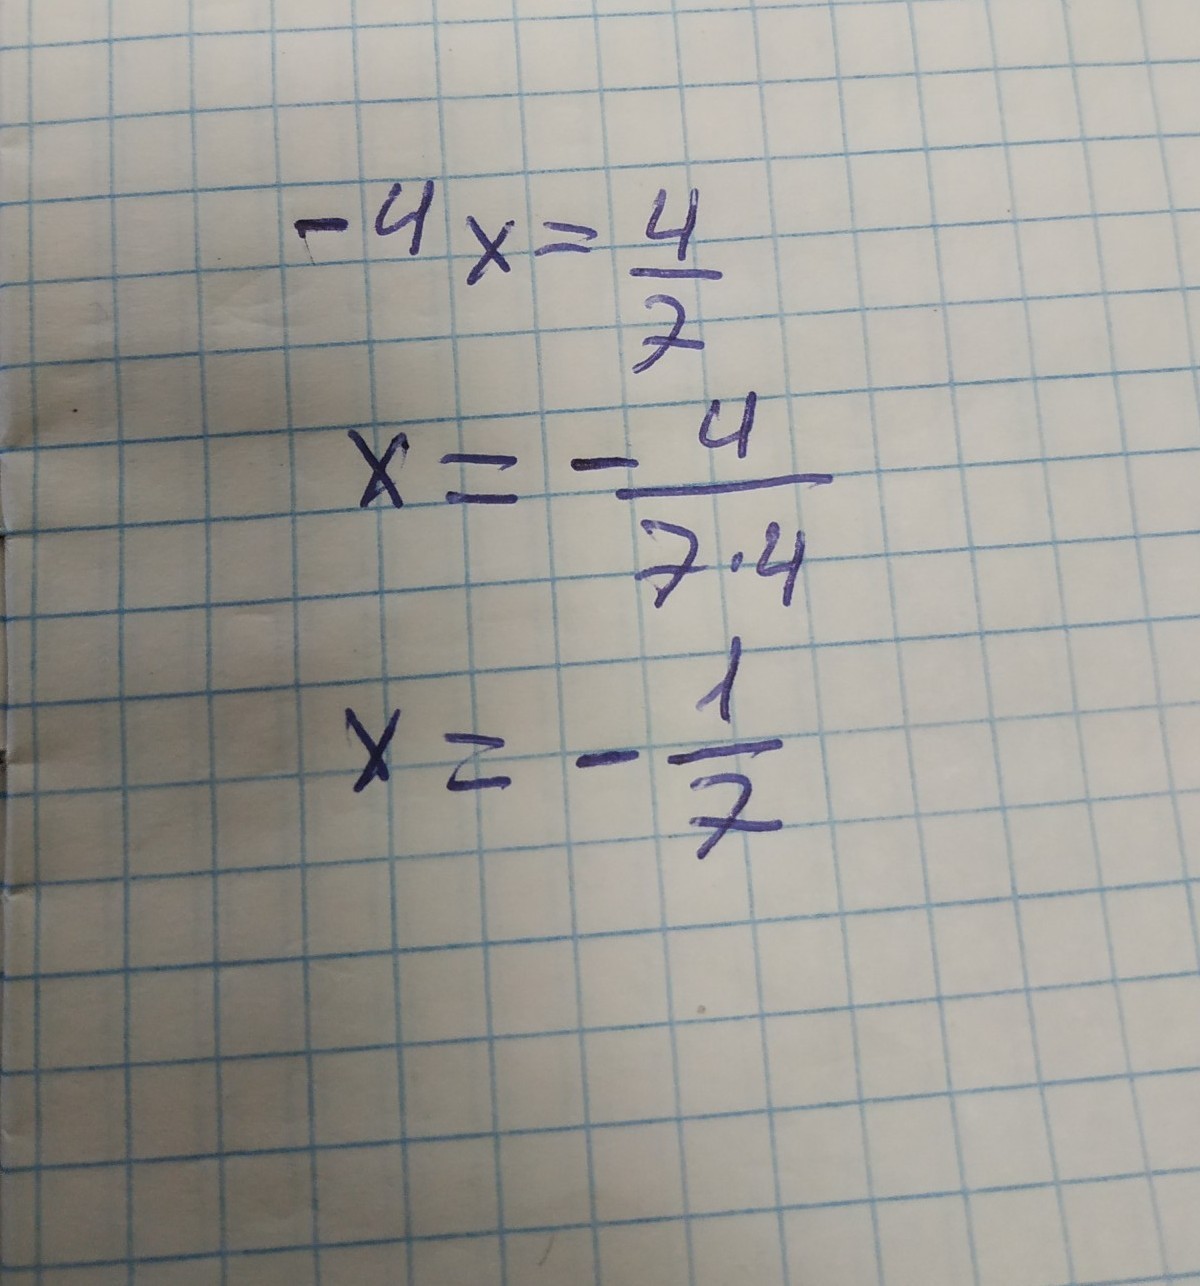 -4x = 4/7
x = - 4/(7·4)
x = - 1/7